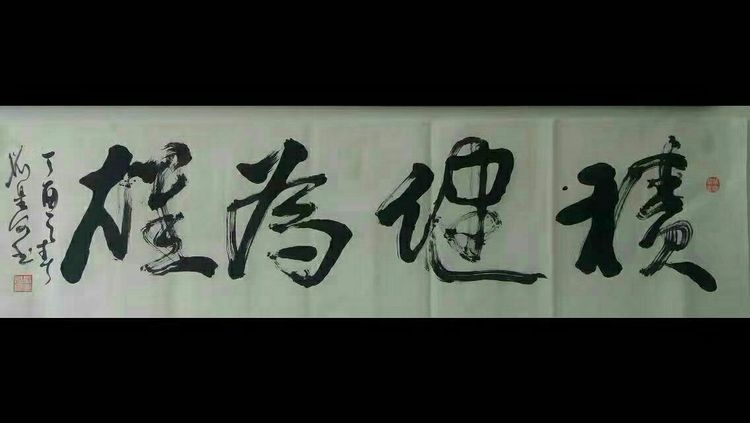 積健為雄
丁酉之春